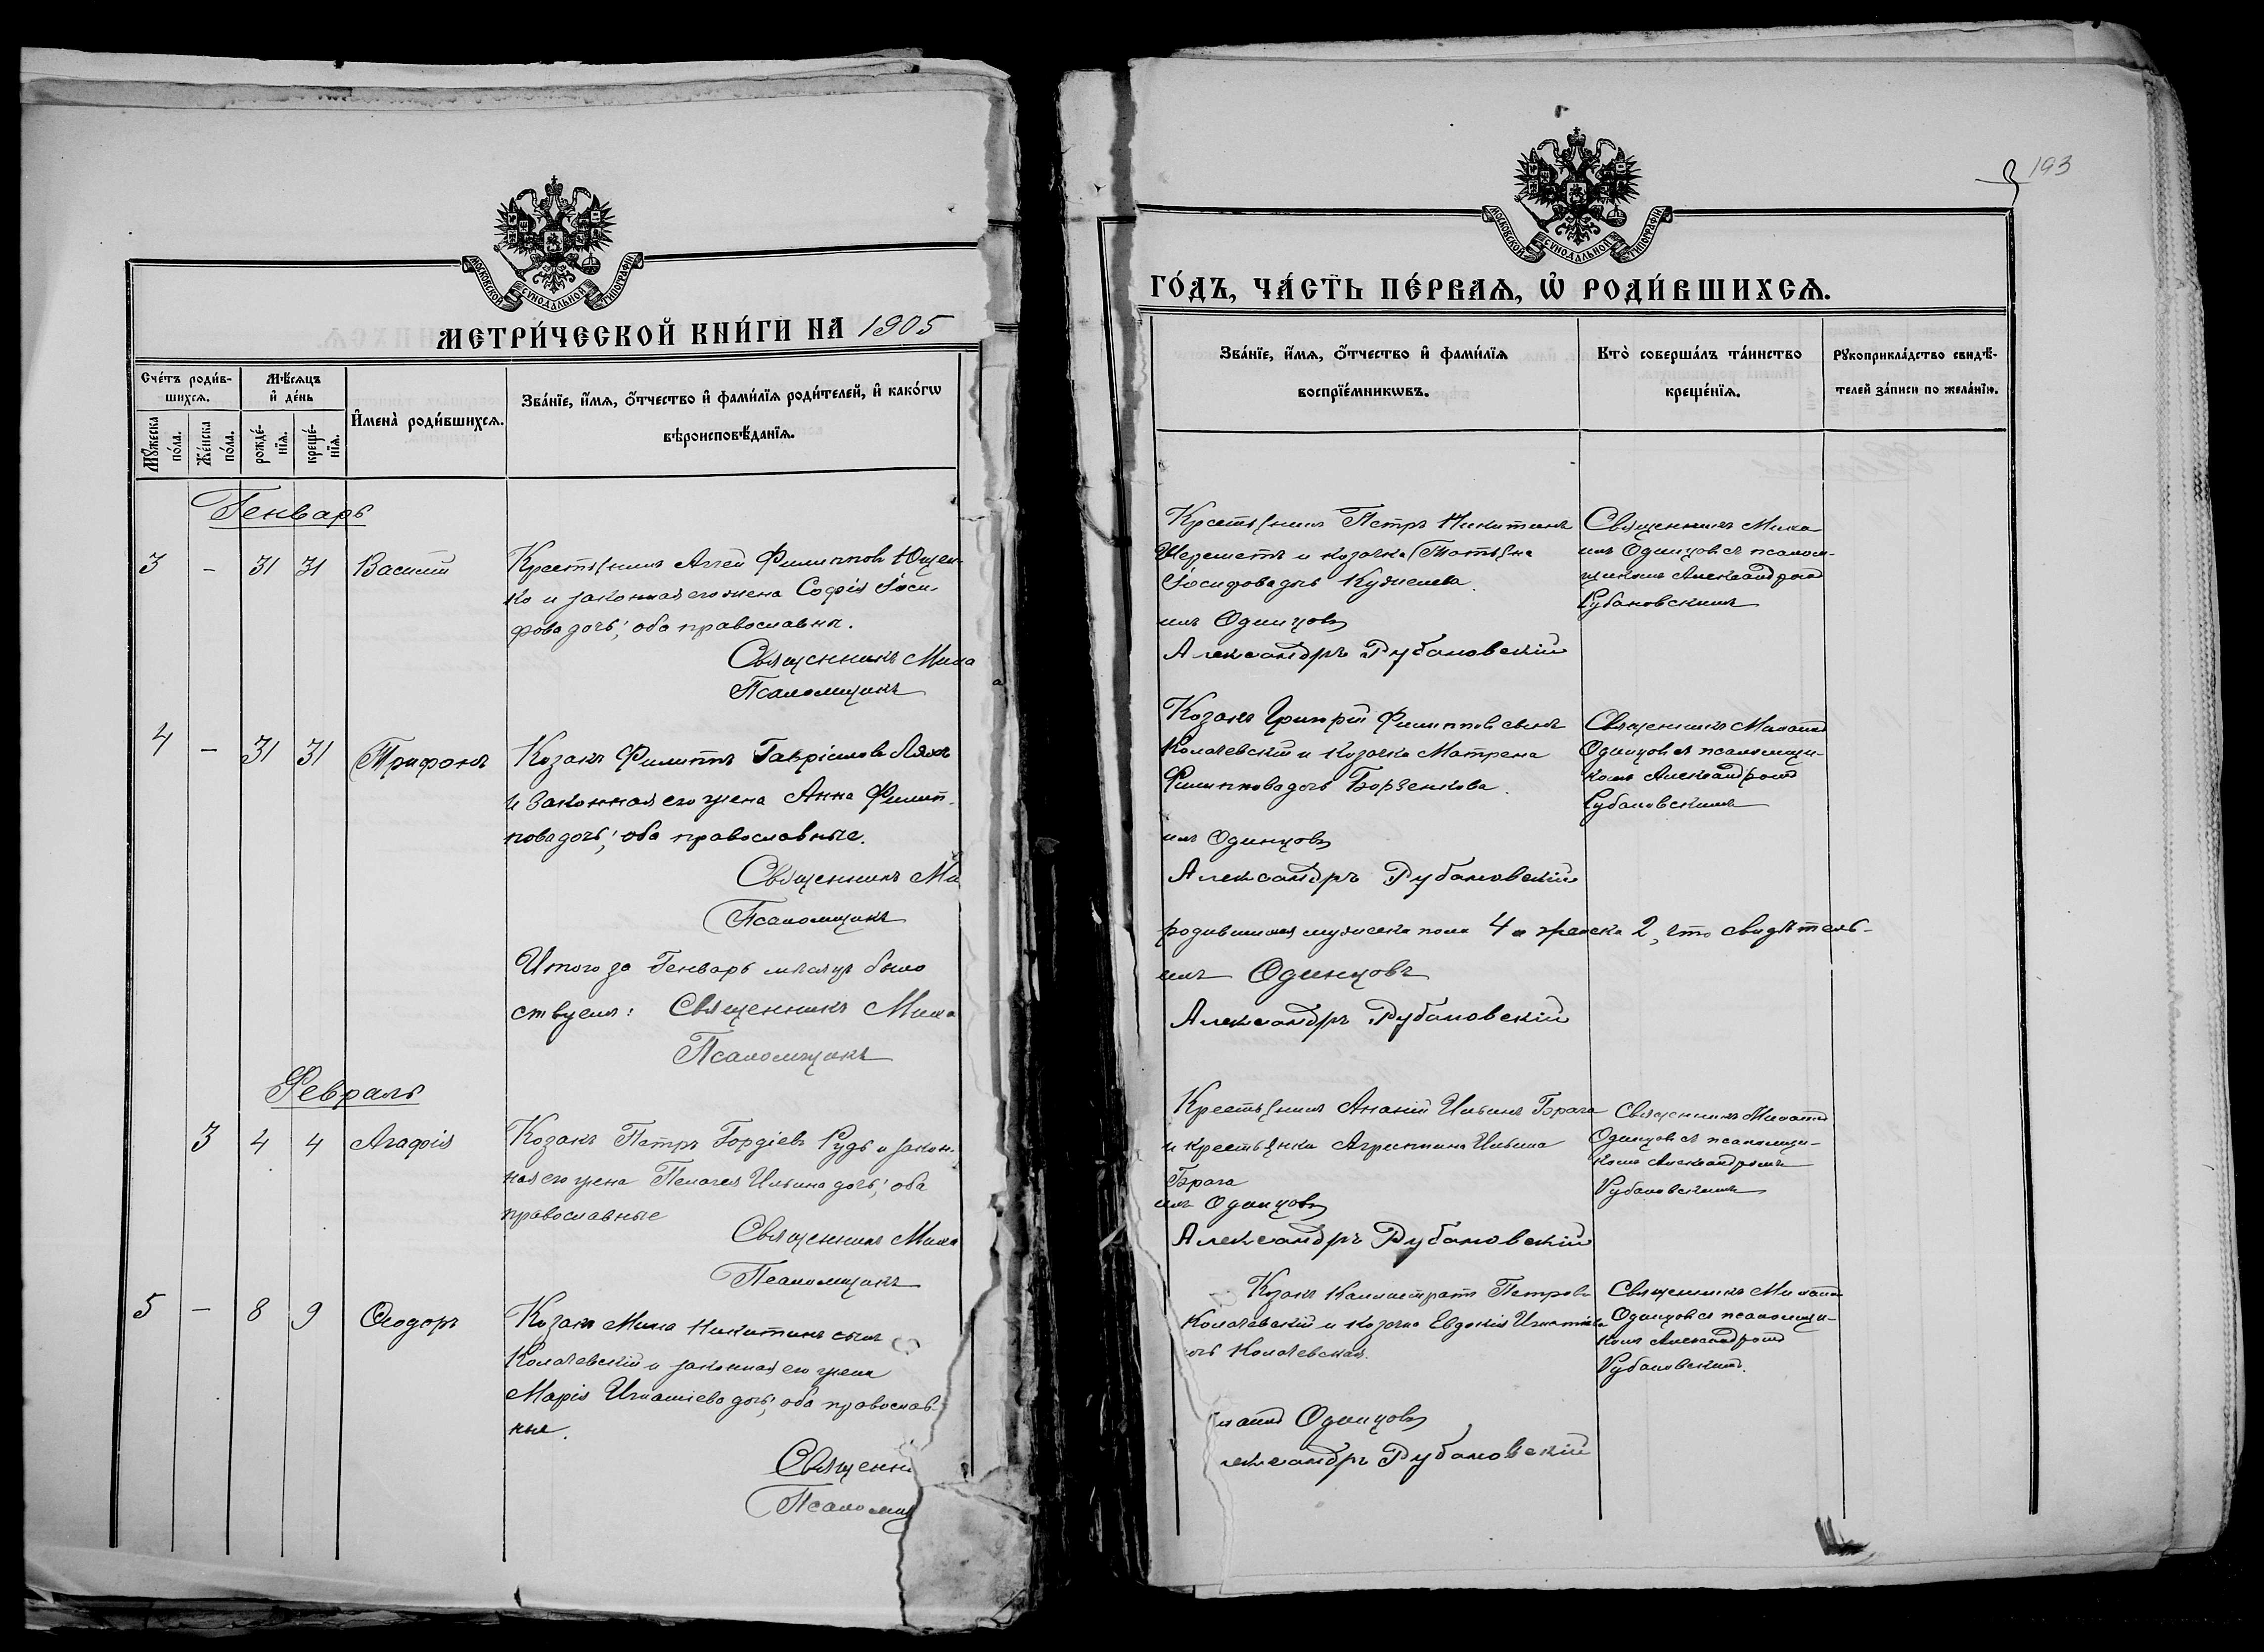 193
МОСКОВСКОЙ СѴНОДАЛЬНОЙ ТИПОГРАФІИ
МЕТРИ́ЧЕСКОЙ КНИ́ГИ НА 1905
Сче́тъ роди́в-
шихсѧ.
Мѣ́сѧцъ
и҆ де́нь
Мꙋ́жеска
по́ла.
Же́нска
по́ла.
рожде́-
нїѧ.
креще́-
нїѧ.
И҆мена̀ роди́вшихсѧ.
Зва́нїе, и҆́мѧ, ѻ҆́тчество и҆ фами́лїѧ роди́телей, и҆ како́гѡ
вѣроисповѣ́данїѧ.
Генварь
3 - 31 31 Василій
Крестьянинъ Аггей Филипповъ Ющен-
ко и законная его жена Софія Іоси-
фова дочь; оба православны.
Священникъ Миха
Псаломщикъ
4 - 31 31 Трифонъ
Козакъ Филиппъ Гавріиловъ Ляхъ
и законная его жена Анна Филип-
пова дочь; оба православные.
Священникъ Ми
Псаломщикъ
Итого за Генварь мѣсяцъ было
ствуемъ: Священникъ Миха
Псаломщикъ
Февраль
3 4 4 Агафія
Козакъ Петръ Гордіевъ Рудь и закон-
ная его жена Пелагея Ильина дочь; оба
православные
Священникъ Миха
Псаломщикъ
5 - 8 9 Ѳеодоръ
Козакъ Миха Никитинъ сынъ
Колачевскій и законная его жена
Марія Игнатіева дочь; оба православ-
ные.
Священни
Псаломщ
МОСКОВСКОЙ СѴНОДАЛЬНОЙ ТИПОГРАФІИ
ГО́ДЪ, ЧА́СТЬ ПЕ́РВАѦ, Ѡ҆ РОДИ́ВШИХСѦ.
Зва́нїе, и҆́мѧ, ѻ҆́тчество и҆ фами́лїѧ
воспрїе́мникѡвъ.
Кто̀ соверша́лъ та́инство
креще́нїѧ.
Рꙋкоприкла́дство свидѣ́-
телей за́писи по жела́нїю.
Крестьянинъ Петръ Никитинъ
Шереметъ и козачка Татьяна
Іосифова дочь Кужелева.
илъ Одинцовъ
Александръ Рубановскій
Священникъ Миха-
илъ Одинцовъ съ псалом-
щикомъ Александромъ
Рубановскимъ
Козакъ Григорій Филипповъ сынъ
Колачевскій и козачка Матрена
Филиппова дочь Борзенкова.
илъ Одинцовъ
Александръ Рубановскій
Священникъ Михаилъ
Одинцовъ съ псаломщи-
комъ Александромъ
Рубановскимъ
родившихся мужеска пола 4 и женска 2, что свидѣтель-
илъ Одинцовъ
Александръ Рубановскій
Крестьянинъ Ананій Ильинъ Брага
и крестьянка Агриппина Ильина
Брага
илъ Одинцовъ
Александръ Рубановскій
Священникъ Михаилъ
Одинцовъ съ псаломщи-
комъ Александромъ
Рубановскимъ
Козакъ Каллистратъ Петровъ
Колачевскій и козачка Евдокія Игнатіева
очь Колачевская.
хаилъ Одинцовъ
лександръ Рубановскій
Священникъ Михаилъ
Одинцовъ съ псаломщи-
комъ Александромъ
Рубановскимъ.